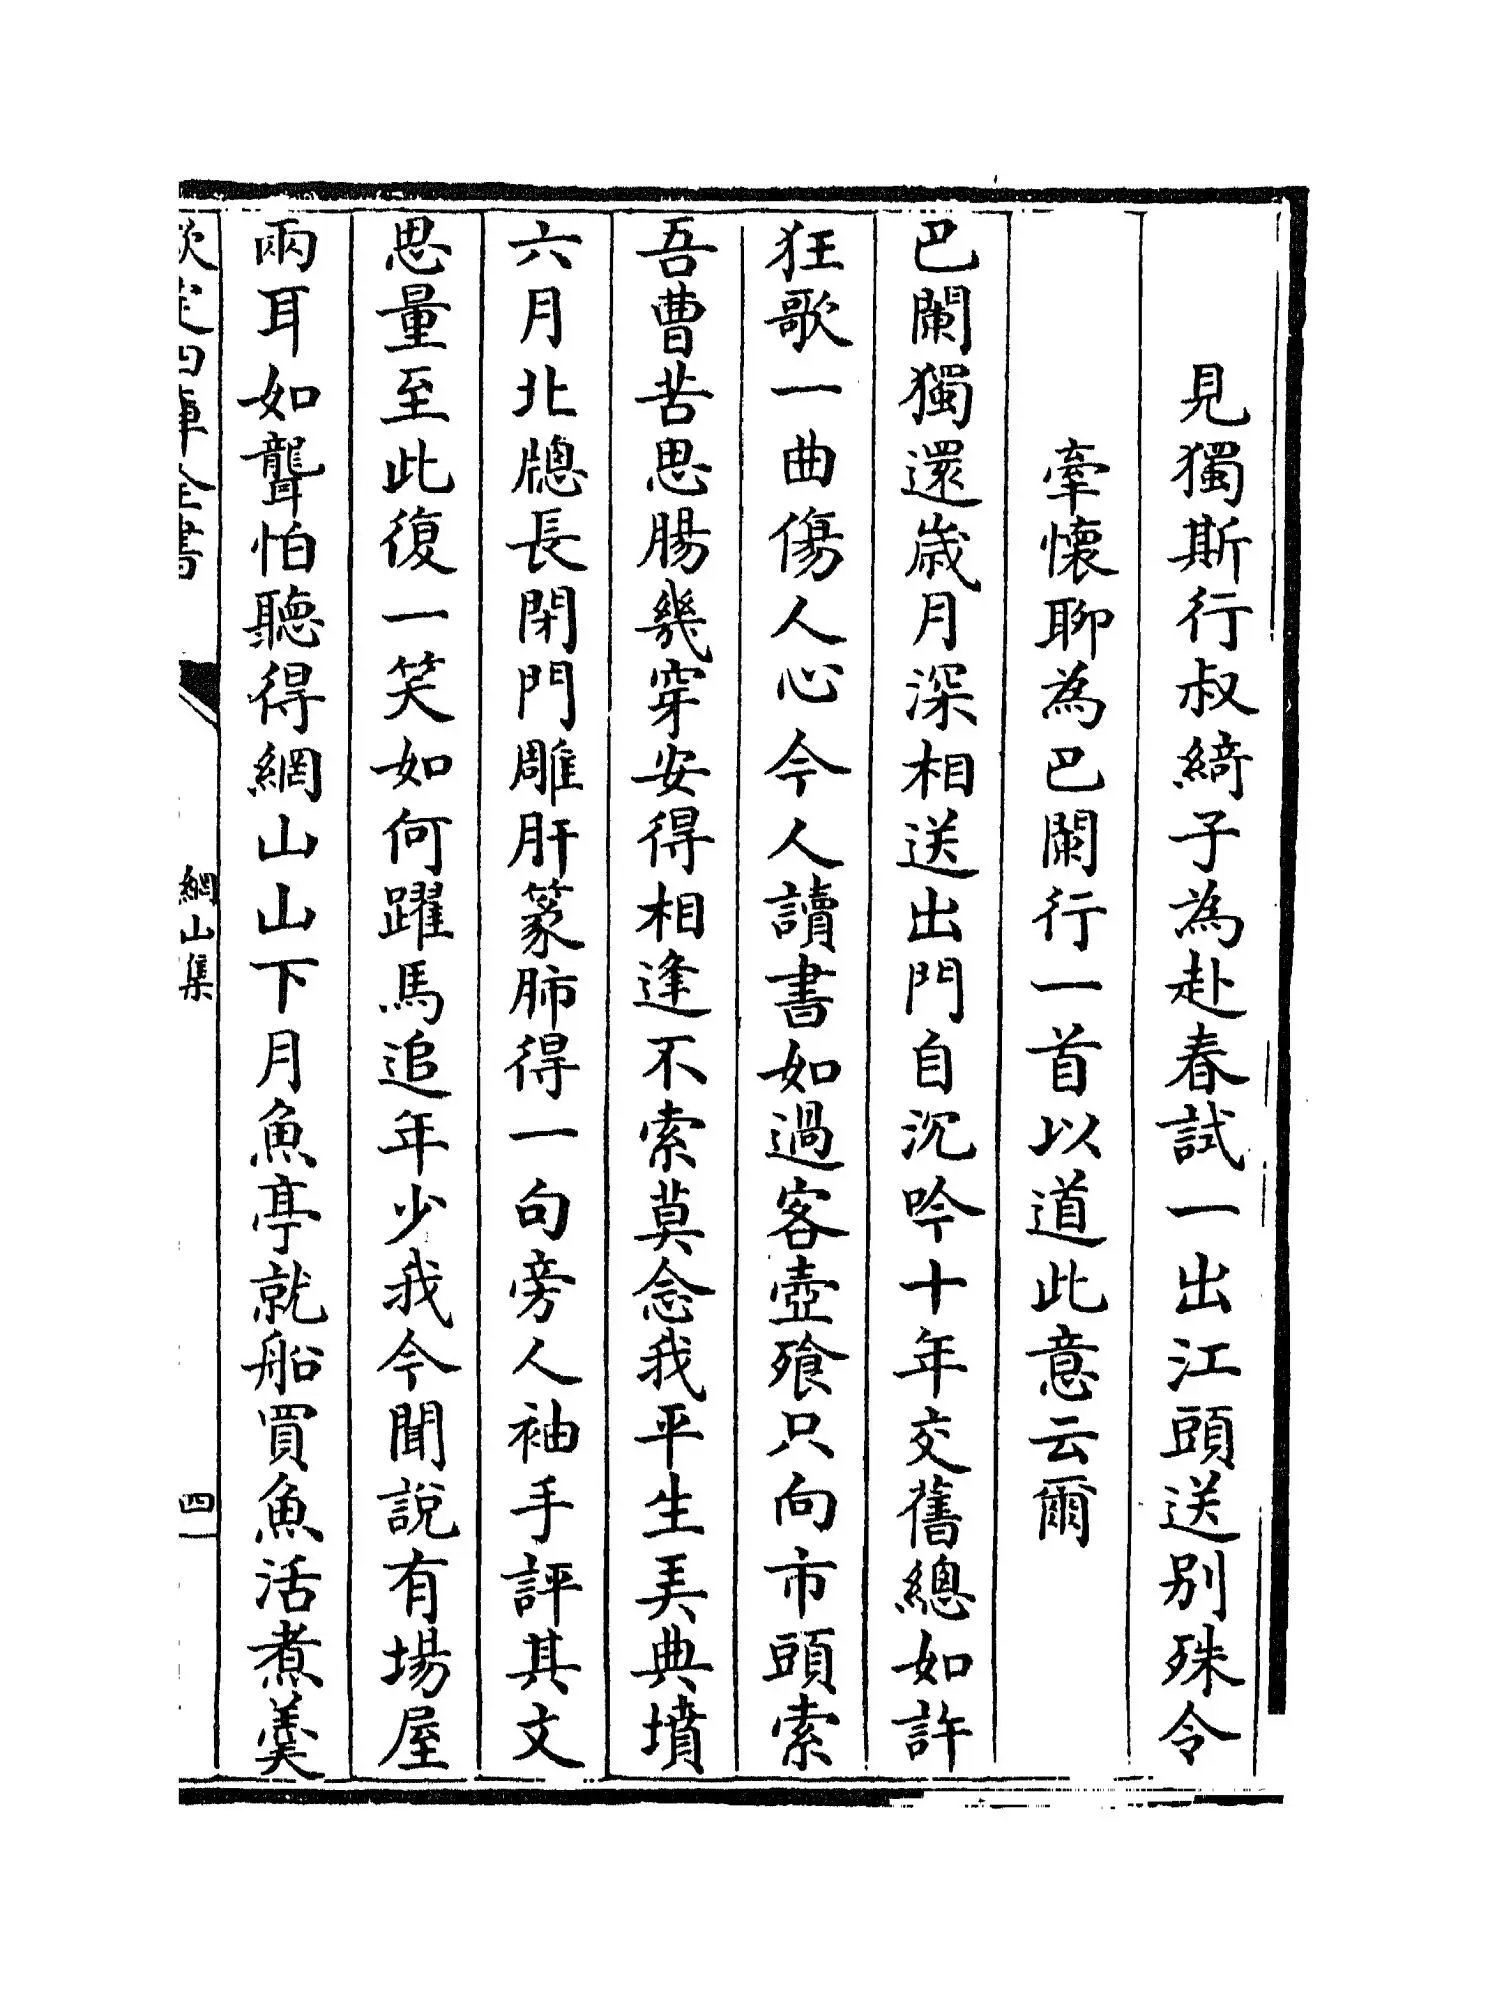 見獨斯行叔綺子為赴春試一出江頭送別殊令
牽懷聊為巴䦨行一首以道此意云爾
巴䦨獨還歳月深相送出門自沉吟十年交舊總如許
狂歌一曲傷人心今人讀書如過客壺飱只向市頭索
吾曹苦思腸幾穿安得相逢不索莫念我平生美典墳
六月北牕長閉門雕肝篆肺得一句旁人袖手評其文
思量至此復一笑如何躍馬追年少我今聞說有場屋
兩耳如聾怕聽得網山山下月魚亭就船買魚魚活煮羹
欽定四庫全書
網山集
四